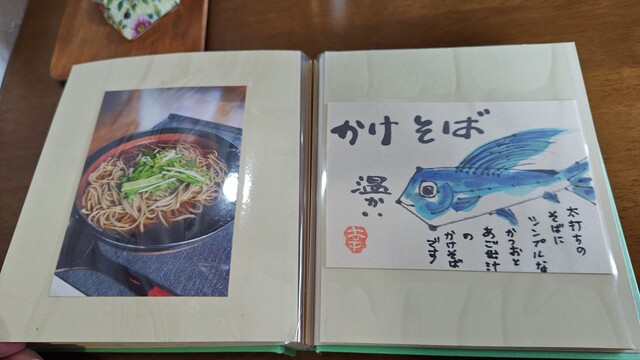 かけそば
温かい
太打ちの
そばに
シンプルな
かつおと
あご出汁
の
かけそば
です
幸